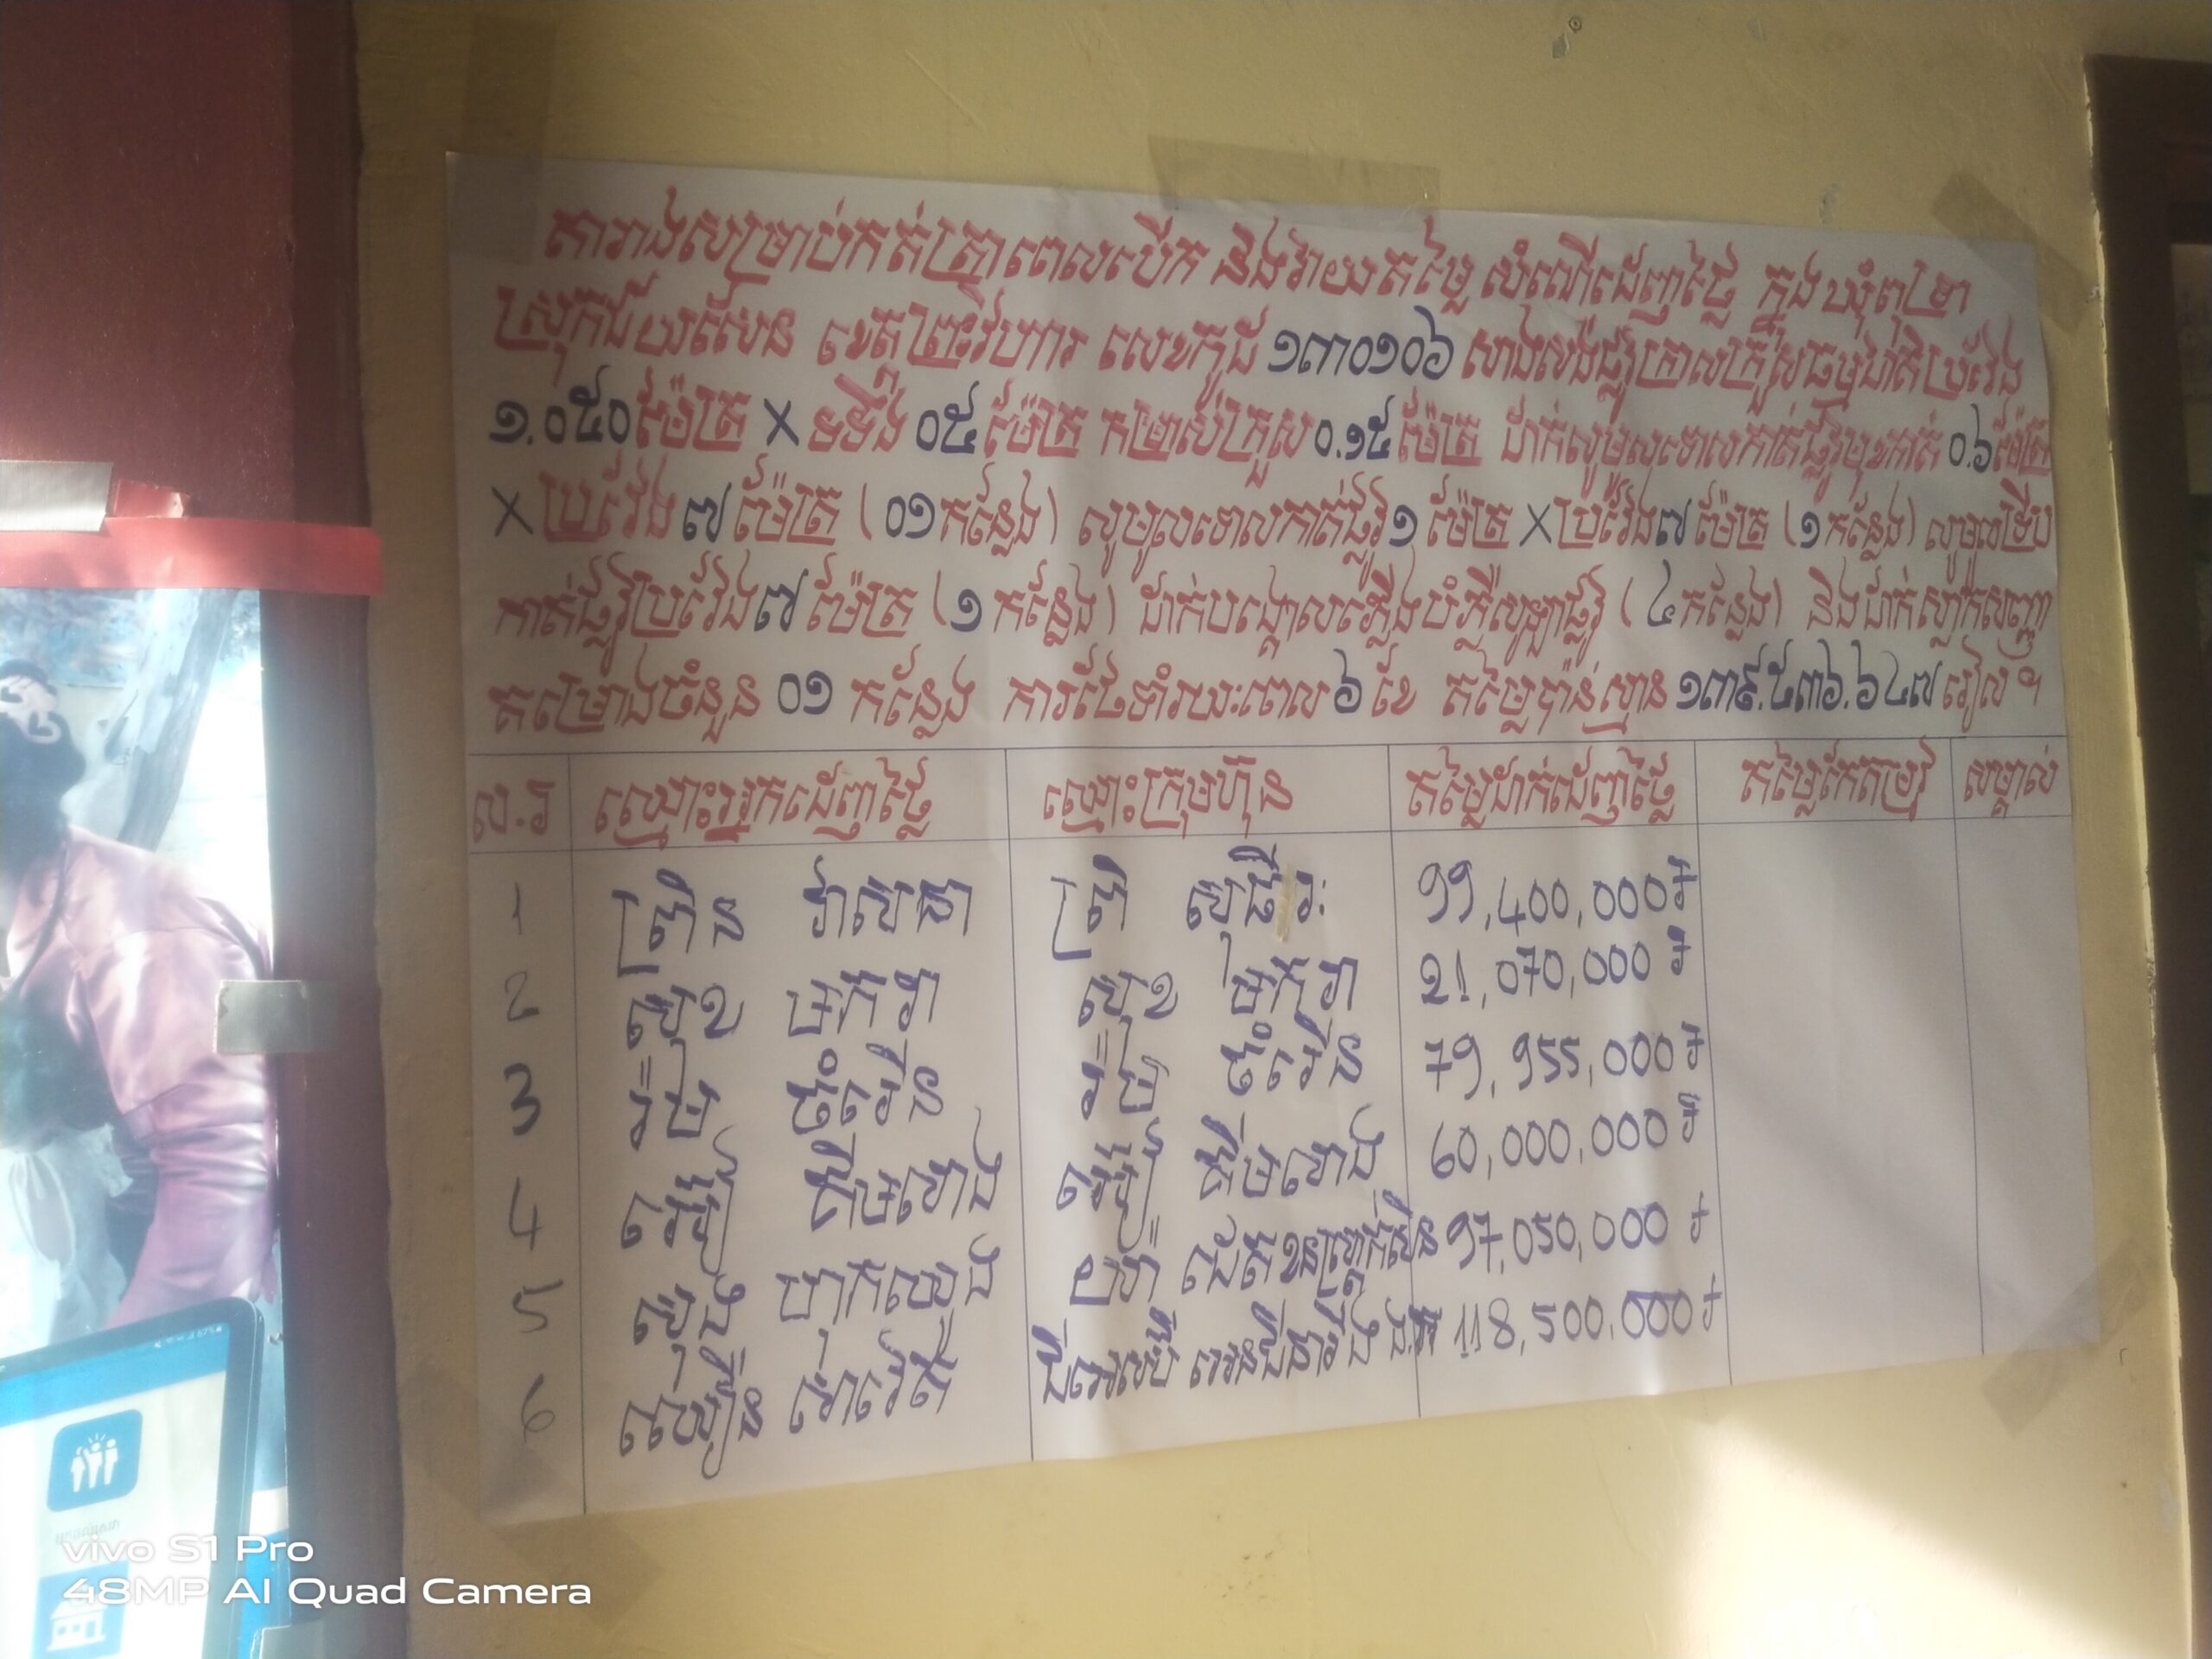 តារាងសម្រាប់កត់ត្រាពេលបើក និងវាយតម្លៃ សំណើដេញថ្លៃ ក្នុងឃុំពុទ្រា
ស្រុកជ័យសែន ខេត្តព្រះវិហារ លេខកូដ ១៣០១០៦ សាងសង់ផ្លូវក្រាលគ្រួសធម្មជាតិប្រវែង
១.០៥០ម៉ែត្រ X ទទឹង ០៥ម៉ែត្រ កម្រាស់គ្រួស ០.១៥ម៉ែត្រ ដាក់លូមូលទោលកាត់ផ្លូវមុខកាត់ ០.៦ម៉ែត្រ
X ប្រវែង ៧ម៉ែត្រ (០១កន្លែង) លូមូលទោលកាត់ផ្លូវ ១ ម៉ែត្រ X ប្រវែង៧ម៉ែត្រ (១កន្លែង) លូមូលទ្វេប
កាត់ផ្លូវប្រវែង៧ម៉ែត្រ (១ កន្លែង) ដាក់បង្គោលភ្លើងបំភ្លឺសន្យាផ្លូវ (៤កន្លែង) និងដាក់ស្លាកសញ្ញា
គម្រោងចំនួន ០១ កន្លែង ការថែទាំរយៈពេល ៦ ខែ តម្លៃប៉ាន់ស្មាន ១៣៩.៥៣៦.៦៤៧ រៀល ។
ល.រ ឈ្មោះអ្នកដេញថ្លៃ ឈ្មោះក្រុមហ៊ុន តម្លៃដាក់ដេញថ្លៃ តម្លៃកែតម្រូវ សម្គាល់
1 ព្រីន វាសនា ព្រី សុធីរៈ 99,400,000៛
2 សុខ មករា សុខ មករា 21,070,000៛
3 ច័ំរើន ចំរើន 79,955,000៛
4 គឹមលាង គឹមលាង 60,000,000៛
5 សួង ហុកឈាង ជេត ខនស្ត្រាក់សិន 97,050,000៛
6 ឈឿន សារ៉េត ជីអេសប៊ី អេនជីនារីង ឯ.ក 118,500,000៛
vivo S1 Pro
48MP AI Quad Camera